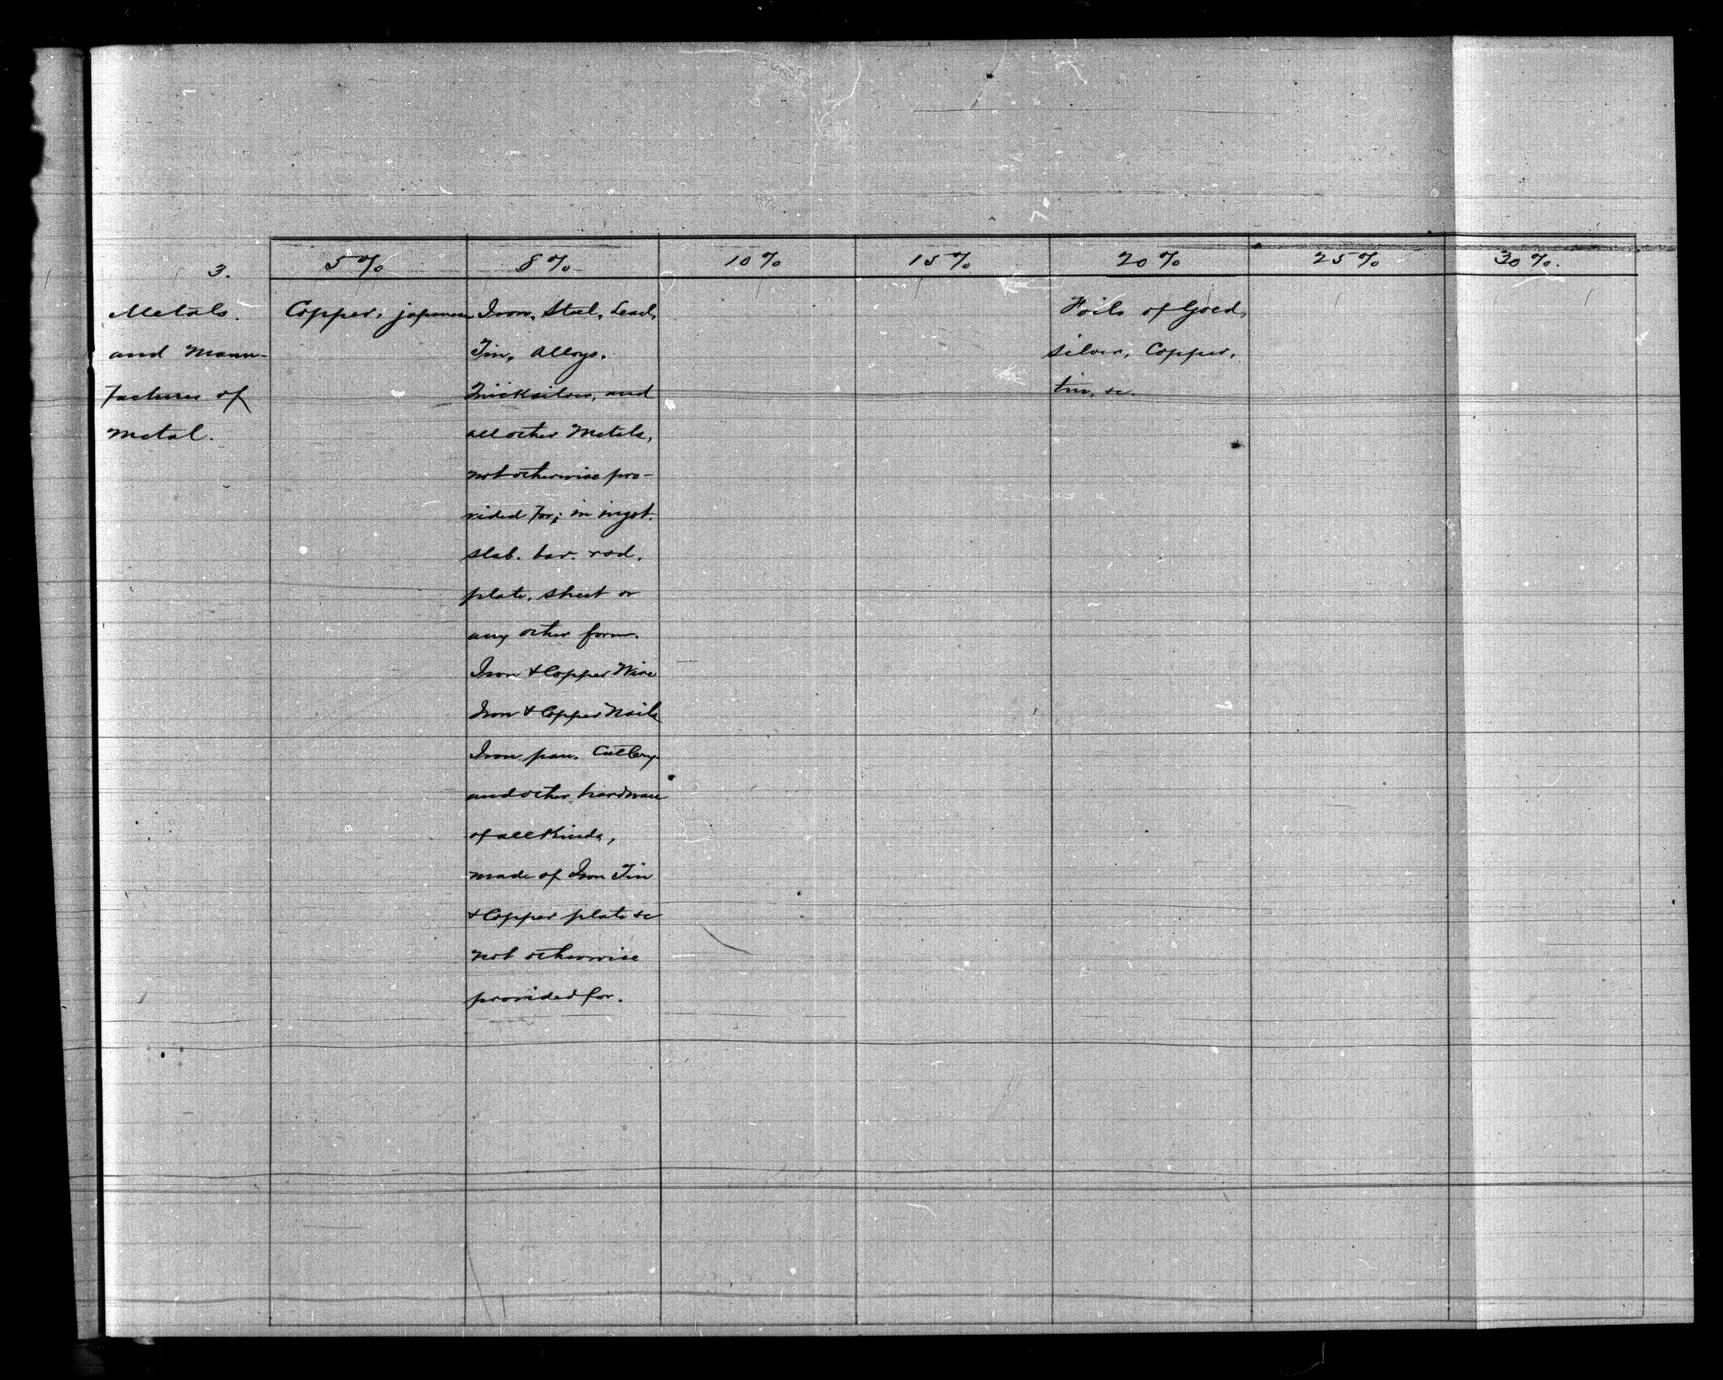 3.
5%
8%
10%
15%
20%
25%
30%.
Metals.
and Manu-
factures of
Metal.
Copper, japanese
Iron, Steel, Lead,
Tin, Alloys.
Quicksilver, and
all other Metals,
not otherwise pro-
vided for; in ingot.
slab. bar. rod.
plate. sheet or
any other form.
Iron & Copper Wire
Iron & Copper Nails
Iron pan. Cutlery
and other hardware
of all Kinds,
made of Iron Tin
& Copper plate &c
not otherwise
provided for.
Foils of Gold,
silver, Copper,
tin, &c.